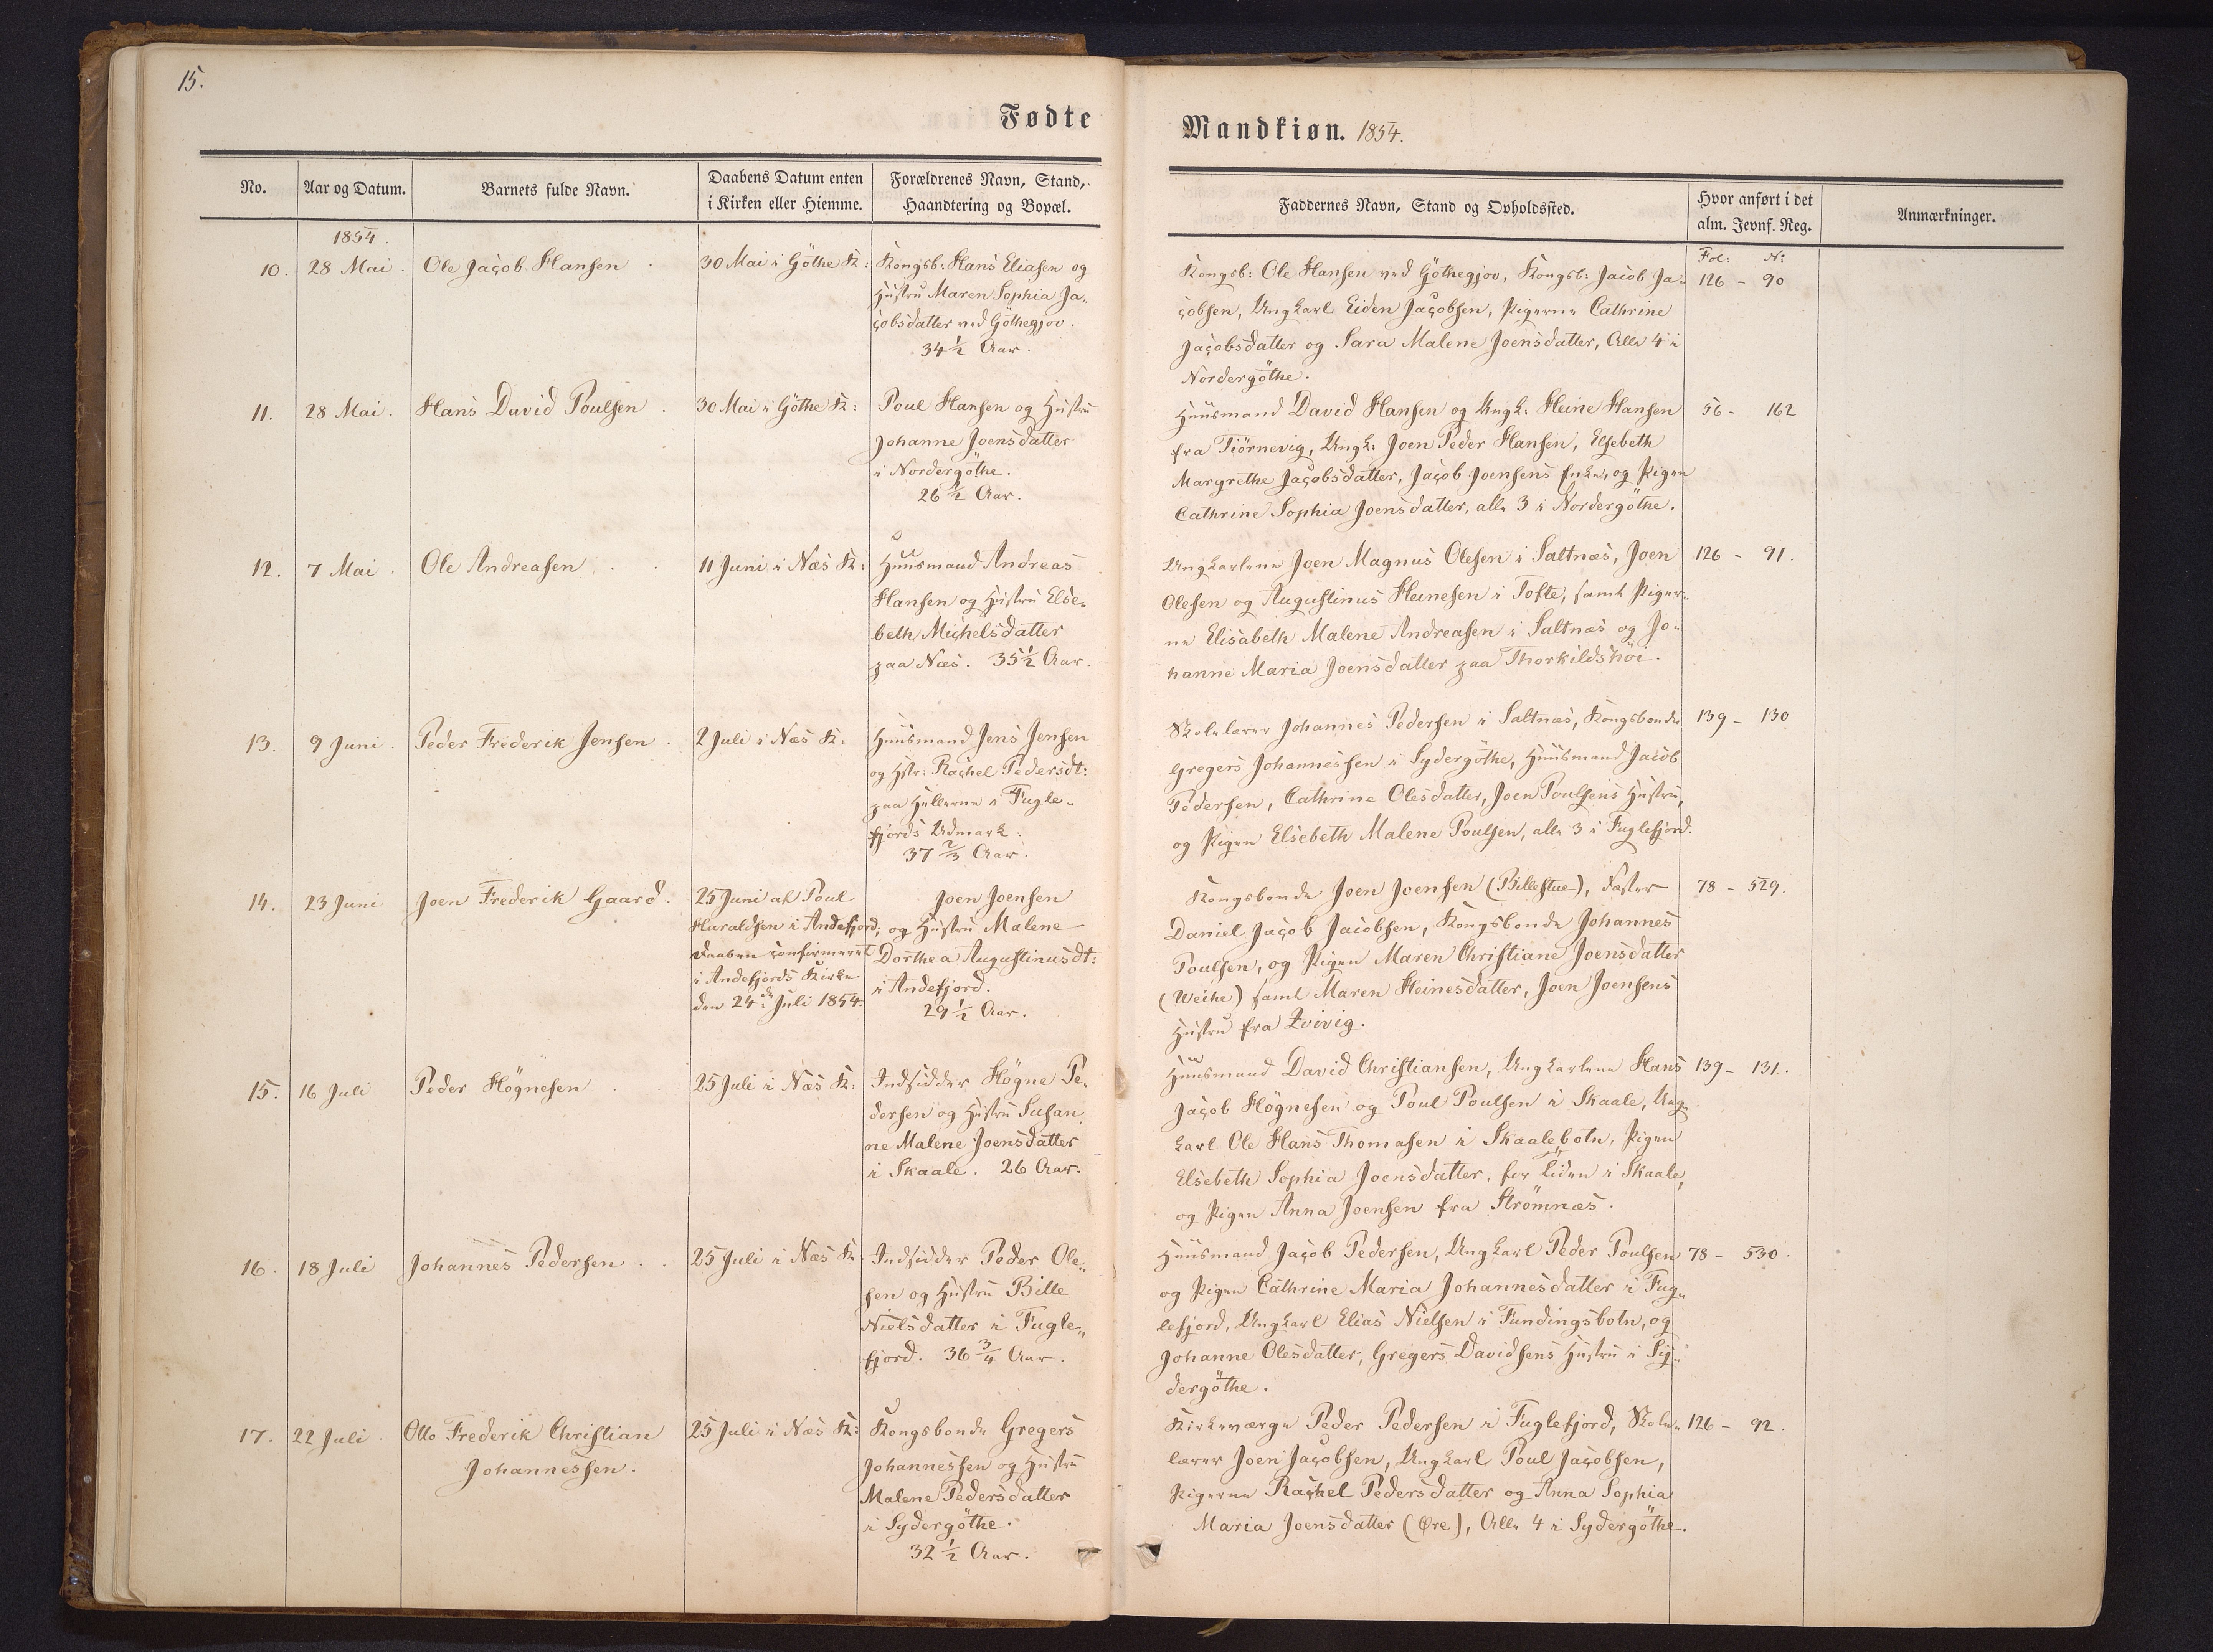 15.
Fødte
Mandkiøn. 1854.
No.
Aar og Datum.
Barnets fulde Navn.
Daabens Datum enten
i Kirken eller Hiemme.
Forældrenes Navn, Stand,
Haandtering og Bopæl.
Faddernes Navn, Stand og Opholdssted.
Hvor anført i det
alm. Jevnf. Reg.
Anmærkninger.
1854.
Fol: N:
10.
28 Mai.
Ole Jacob Hansen
30 Mai i Göthe K:
Kongsb. Hans Eliasen og
Hustru Maren Sophia Ja-
cobsdatter ved Göthegjov.
34 1/2 Aar.
Kongsb: Ole Hansen ved Göthegjov, Kongsb: Jacob Ja-
cobsen, Ungkarl Eiden Jacobsen, Pigerne Cathrine
Jacobsdatter og Sara Malene Joensdatter, Alle 4 i
Nordergöthe.
126 - 90
11.
28 Mai.
Hans David Poulsen
30 Mai i Göthe K:
Poul Hansen og Hustru
Johanne Joensdatter
i Nordergöthe.
26 1/2 Aar.
Huusmand David Hansen og Ungk. Heine Hansen
fra Tiörnevig, Ungk: Joen Peder Hansen, Elsebeth
Margrethe Jacobsdatter, Jacob Joensens Enke, og Pigen
Cathrine Sophia Joensdatter, alle 3 i Nordergöthe.
56 - 162
12.
7 Mai.
Ole Andreasen
11 Juni i Næs K:
Huusmand Andreas
Hansen og Hustru Else-
beth Michelsdatter
paa Næs. 35 1/2 Aar.
Ungkarlene Joen Magnus Olesen i Saltnæs, Joen
Olesen og Augustinus Heinesen i Tofte, samt Piger-
ne Elisabeth Malene Andreasen i Saltnæs og Jo-
hanne Maria Joensdatter paa Thorkildshöi.
126 - 91.
13.
9 Juni.
Peder Frederik Jensen.
2 Juli i Næs K.
Huusmand Jens Jensen
og Hstr: Rachel Pedersdt:
paa Hellerne i Fugle-
fjords Udmark.
37 2/3 Aar.
Skolelærer Johannes Pedersen i Saltnæs, Kongsbonde
Gregers Johannessen i Sydergöthe, Huusmand Jacob
Pedersen, Cathrine Olesdatter, Joen Poulsens Hustru,
og Pigen Elsebeth Malene Poulsen, alle 3 i Fuglefjord.
139 - 130
14.
23 Juni
Joen Frederik Gaard.
25 Juni af Poul
Haraldsen i Andefjord;
Daaben confirmeret
i Andefjords Kirke
den 24de Juli 1854.
Joen Joensen
og Hustru Malene
Dorthea Augustinusdt:
i Andefjord.
29 1/2 Aar.
Kongsbonde Joen Joensen (Billestue), Fæster
Daniel Jacob Jacobsen, Kongsbonde Johannes
Poulsen, og Pigen Maren Christiane Joensdatter
(Weihe) samt Maren Heinesdatter, Joen Joensens
Hustru fra Zvivig.
78 - 529.
15.
16 Juli
Peder Högnesen
25 Juli i Næs K:
Indsidder Högne Pe-
dersen og Hustru Susan-
ne Malene Joensdatter
i Skaale. 26 Aar.
Huusmand David Christiansen, Ungkarlene Hans
Jacob Högnesen og Poul Poulsen i Skaale, Ung-
karl Ole Hans Thomasen i Skaalebotn, Pigen
Elsebeth Sophia Joensdatter, for Liden i Skaale,
og Pigen Anna Joensen fra Strömnæs.
139 - 131.
16.
18 Juli
Johannes Pedersen
25 Juli i Næs K:
Indsidder Peder Ole-
sen og Hustru Bille
Nielsdatter i Fugle-
fjord. 36 3/4 Aar.
Huusmand Jacob Pedersen, Ungkarl Peder Poulsen
og Pigen Cathrine Maria Johannesdatter i Fug-
lefjord, Ungkarl Elias Nielsen i Fundingsbotn, og
Johanne Olesdatter, Gregers Davidsens Hustru i Sy-
dergöthe.
78 - 530.
17.
22 Juli.
Otto Frederik Christian
Johannessen.
25 Juli i Næs K:
Kongsbonde Gregers
Johannessen og Hustru
Malene Pedersdatter
i Sydergöthe.
32 1/2 Aar.
Kirkeværge Peder Pedersen i Fuglefjord, Skole-
lærer Joen Jacobsen, Ungkarl Poul Jacobsen,
Pigerne Rachel Pedersdatter og Anna Sophia
Maria Joensdatter (Øre), Alle 4 i Sydergöthe.
126 - 92.